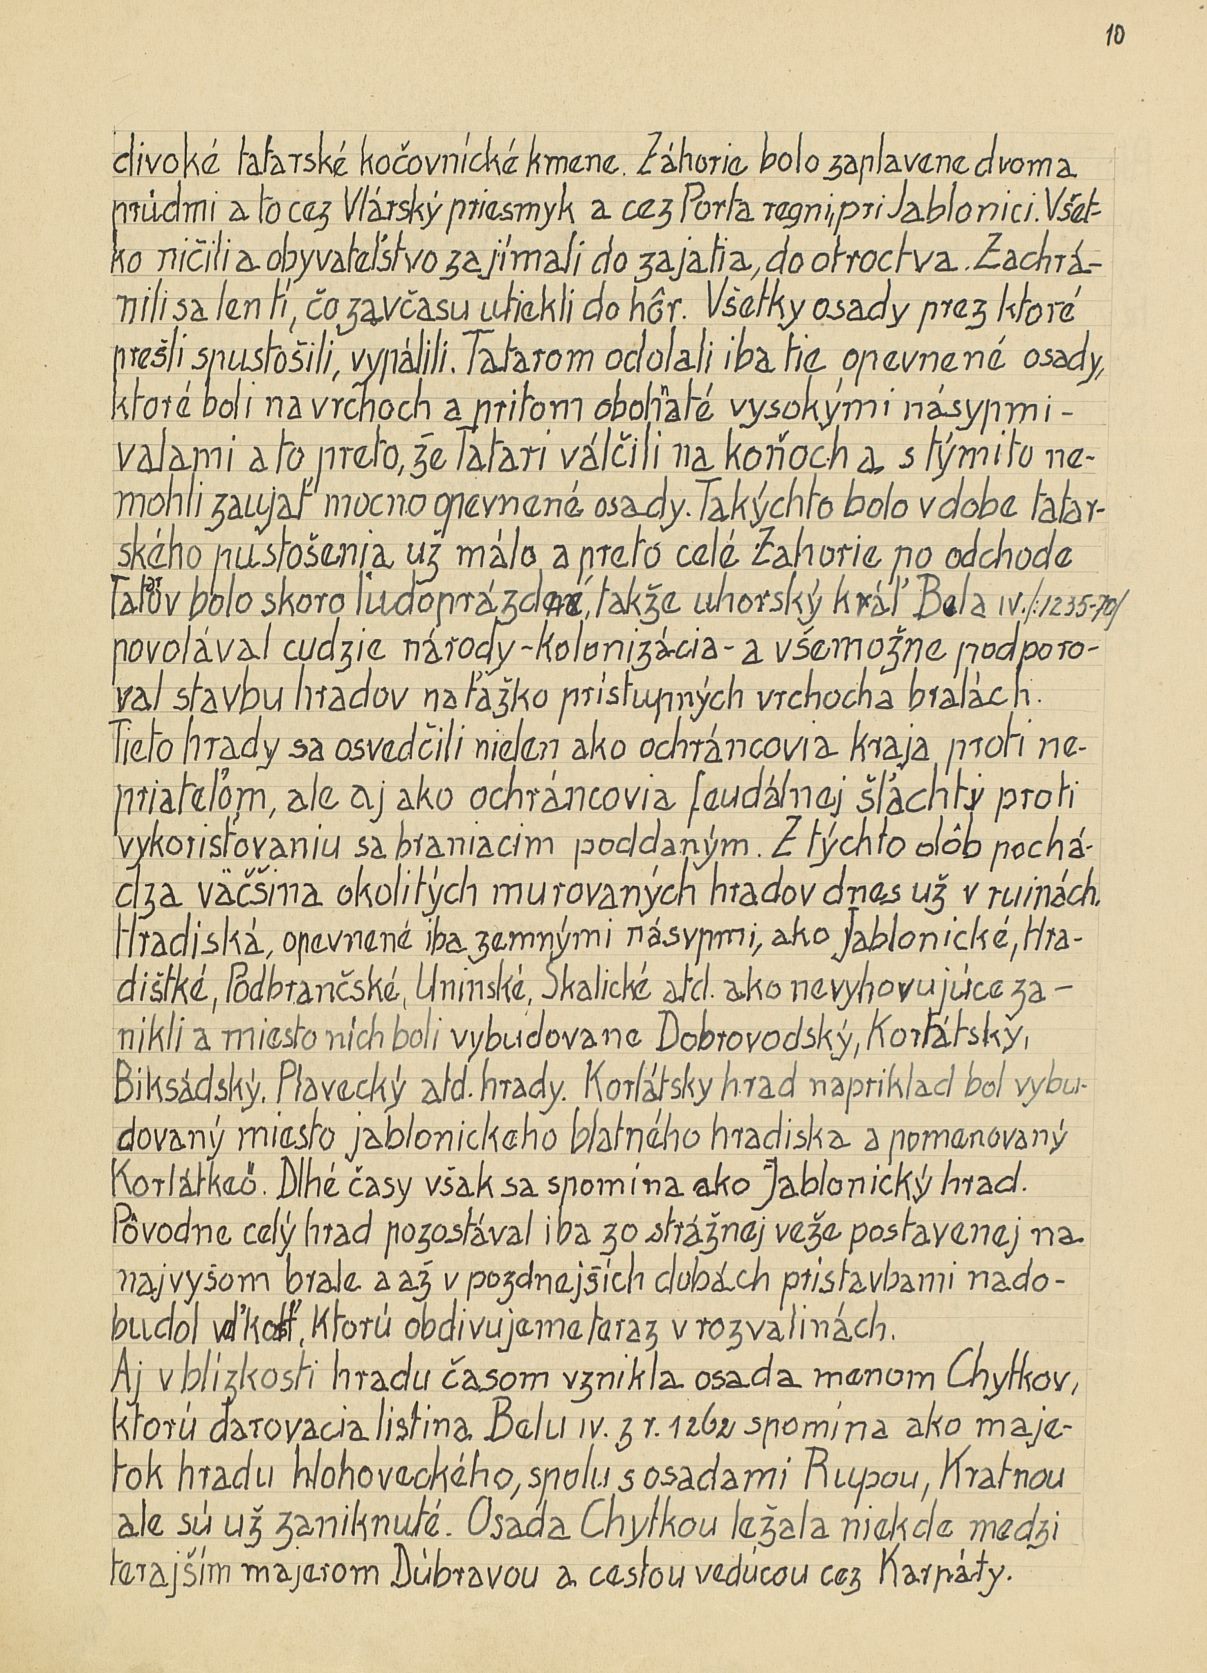 10
divoké tatarské kočovnícké kmene. Záhorie bolo zaplavene dvoma
prúdmi a to cez Vlárský priesmyk a cez Porta regni, pri Jablonici. Všet-
ko ničili a obyvateľstvo zajímali do zajatia, do otroctva. Zachrá-
nili sa len tí, čo zavčasu utiekli do hôr. Všetky osady prez ktoré
prešli spustošili, vypálili. Tatarom odolali iba tie opevnené osady,
ktoré boli na vrchoch a pritom obohnaté vysokými násypmi -
valami a to preto, že Tatari válčili na koňoch a s týmito ne-
mohli zaujať mocno opevnené osady. Takýchto bolo v dobe tatar-
ského pustošenia už málo a preto celé Záhorie po odchode
Tatárov bolo skoro ľudoprázdne, takže uhorský kráľ Bela IV. /:1235-70/
povolával cudzie národy - kolonizácia - a všemožne podporo-
val stavbu hradov na ťažko prístupných vrchocha bralách.
Tieto hrady sa osvedčili nielen ako ochráncovia kraja proti ne-
priateľom, ale aj ako ochráncovia feudálnej šľachty proti
vykorisťovaniu sa braniacim poddaným. Z týchto dôb pochá-
dza väčšina okolitých murovaných hradov dnes už v ruinách.
Hradiská, opevnené iba zemnými násypmi, ako Jablonické, Hra-
dištké, Podbrančské, Uninské, Skalické atd. ako nevyhovujúce za-
nikli a miesto ních boli vybudovane Dobrovodský, Korlátský,
Biksádský, Plavecký atd. hrady. Korlátsky hrad napriklad bol vybu-
dovaný miesto jablonickeho blatného hradiska a pomenovaný
Korlátkeö. Dlhé časy však sa spomína ako Jablonický hrad.
Pôvodne celý hrad pozostával iba zo strážnej veže postavenej na
najvyšom brale a až v pozdnejších dobách pristavbami nado-
budol veľkosť, ktorú obdivujeme teraz v rozvalinách.
Aj v blízkosti hradu časom vznikla osada menom Chytkov,
ktorú darovacia listina Belu IV. z r. 1262 spomína ako maje-
tok hradu hlohoveckého, spolu s osadami Rupou, Kratnou
ale sú už zaniknuté. Osada Chytkou ležala niekde medzi
terajším majerom Dúbravou a cestou vedúcou cez Karpáty.